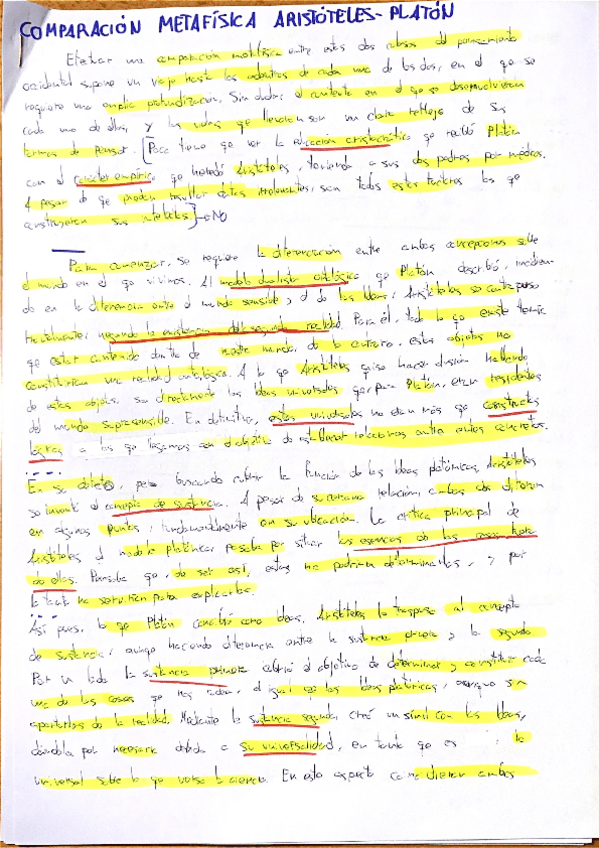 COMPARACIÓN METAFÍSICA ARISTÓTELES-PLATÓN
Efectuar una comparación metafísica entre estos dos del pensamiento
occidental supone un viaje hasta los adentros de cada uno de los dos, en el qe se
requiere una amplia profundización. Sin dudar, el contexto en el qe se desenvolvieron
cada uno de ellos, y las vidas qe llevaron son un claro reflejo de sus
formas de pensar. Poco tiene qe ver la educación aristocrática qe recibió Platón
con el carácter empírico qe heredó Aristóteles, teniendo a sus dos padres por médicos.
A pesar de qe puedan resultar datos irrelevantes, son todos estos factores los qe
construyeron sus intelectos → NO
Para comenzar, se requiere la diferenciación entre ambas concepciones sobre
el mundo en el qe vivimos. Al modelo dualista ontológico qe Platón describió,
do en la diferencia entre el mundo sensible y el de las Ideas, Aristóteles se contrapuso
totalmente, negando la existencia del segunda realidad. Para él, todo lo qe existe tenía
qe estar contenido dentro de nuestro mundo, de lo contrario, estos objetos no
constituirían una realidad ontológica. A lo qe Aristóteles quiso hacer alusión hablando
de estos objetos, son directamente las Ideas universales qe para Platón, eran residentes
del mundo suprasensible. En definitiva, estos universales no eran más qe constructos
lógicos a los qe llegamos con el objetivo de establecer relaciones entre entes concretos.
En su objeto, pero buscando cubrir la función de las Ideas platónicas, Aristóteles
se inventó el concepto de sustancia. A pesar de su cercana relación, ambas dos difieren
en algunos puntos, fundamentalmente en su ubicación. La crítica principal de
Aristóteles al modelo platónico, pasaba por situar las esencias de las cosas fuera
de ellas. Pensaba qe, de ser así, estas no podrían determinarlas, y por
lo tanto no servirían para explicarlas.
Así pues, lo qe Platón concibió como ideas, Aristóteles lo traspasó al concepto
de sustancia, aunqe haciendo diferencia entre la sustancia primera y la segunda.
Por un lado la sustancia primera cubrió el objetivo de determinar y constituir cada
una de las cosas qe nos rodean, al igual qe las Ideas platónicas, aunque sin
apartarlas de la realidad. Mediante la sustancia segunda, creó un símil con las Ideas,
dándola por necesaria debido a su universalidad, en tanto qe es lo
universal sobre lo qe versa la ciencia. En este aspecto ambos